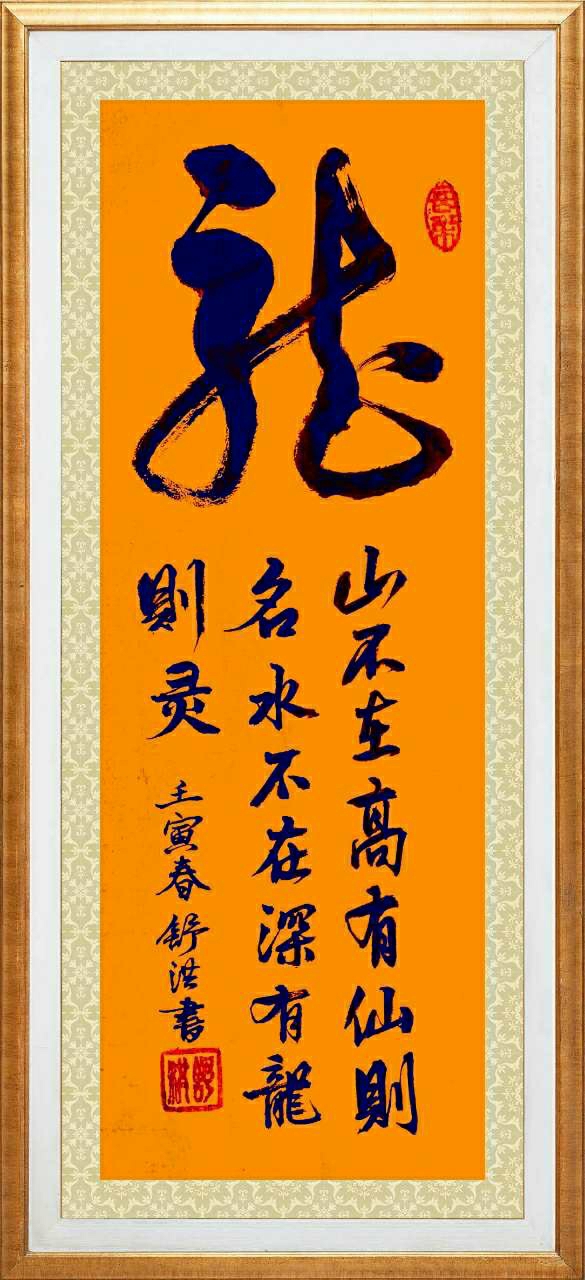 龍
山不在高有仙則
名水不在深有龍
則灵
壬寅春舒洪書
舒洪